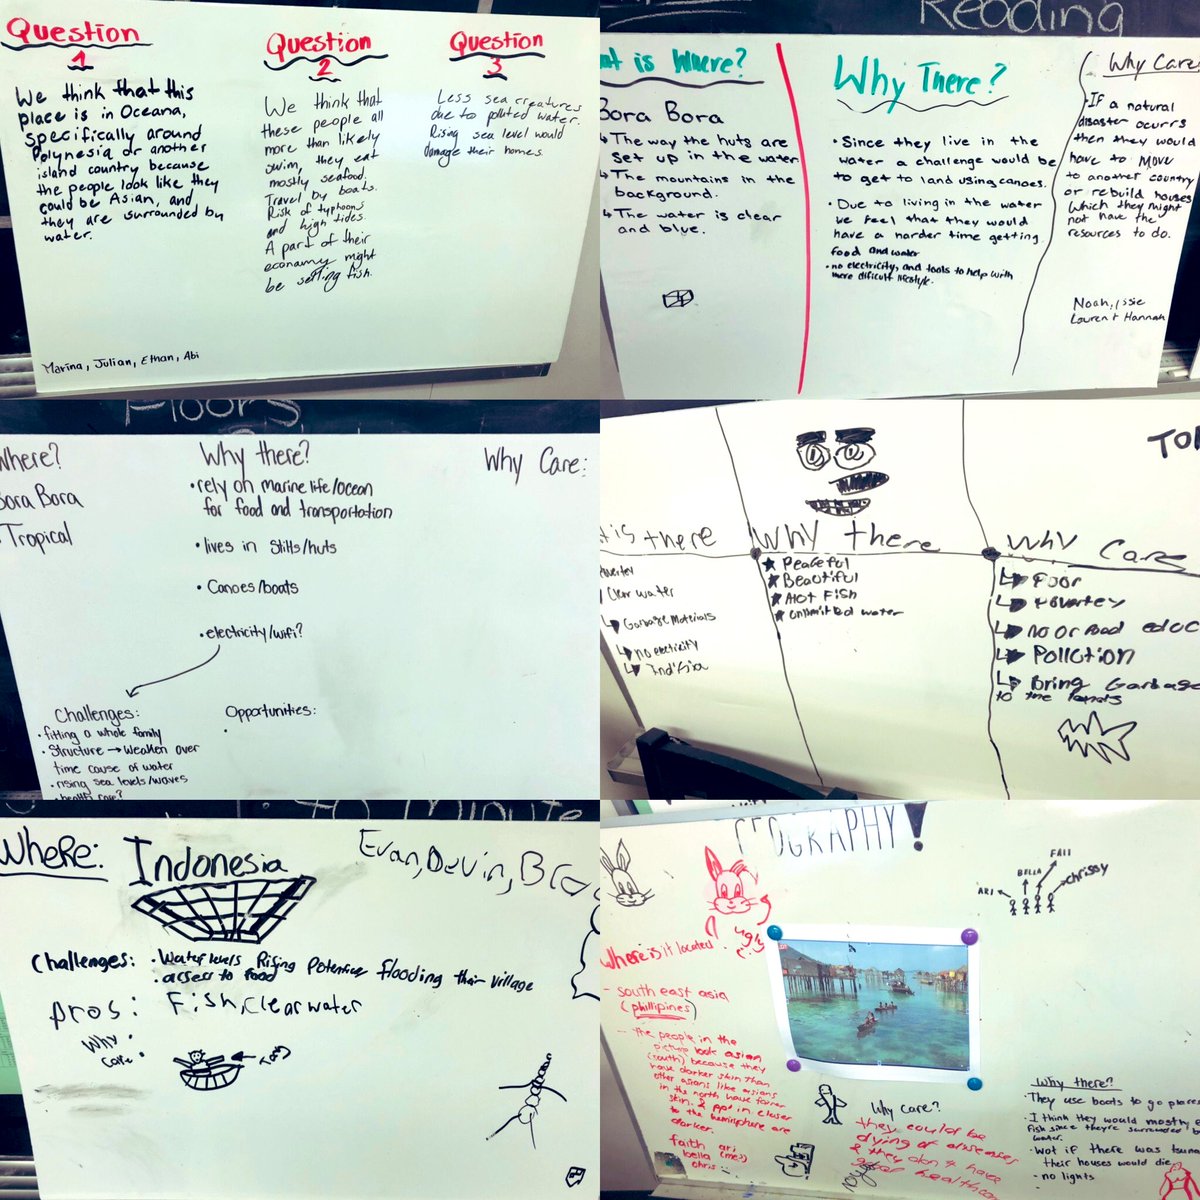 Question
1
We think that this
place is in Oceana,
specifically around
Polynesia or another
island country because
the people look like they
could be Asian, and
they are surrounded by
water.
Question
2
We think that
these people all
more than likely
swim, they eat
mostly seafood.
Travel by boats.
Risk of typhoons
and high tides.
A part of their
economy might
be selling fish.
Question
3
Less sea creatures
due to polluted water.
Rising sea level would
damage their homes.
Marina, Julian, Ethan, Abi
Reading
at is Where?
Bora Bora
The way the huts are
set up in the water
The mountains in the
background.
The water is clear
and blue.
Why There?
• Since they live in the
water a challenge would be
to get to land using canoes.
• Due to living in the water
we feel that they would
have a harder time getting
food and water
• no electricity, and tools to help with
more dificult lifestyle.
Why Care
• If a natural
disaster ocurrs
then they would
have to move
to another country
or rebuild houses
which they might
not have the
resources to do.
Noah, Issie
Lauren + Hannah
Floors
Where?
Bora Bora
Tropical
Why there?
• rely on marine life/ocean
for food and transportation
• lives in Stilts/huts
• Canoes/boats
• electricity/wifi?
Challenges:
• fitting a whole family
• Structure → Weaken over
time cause of water
• rising sea levels/waves
• health care?
Opportunities:
•
Why Care:
TO
t is there
Clear water
Garbage Materials
no electicity
Why there
Peaceful
Beautiful
Hot Fish
Why Care
Poor
Povertey
no or bad educ
Pollution
Bring Garbage
to the
10 Minute
Where: Indonesia
Evan, Devin, Bra
Challenges: • Water levels Rising Potentialy flooding their village
• access to food
Pros: Fish, Clear water
Why
Care
GEOGRAPHY!
ugly
ARI
BELLA
FAII
chrissy
Where is it located
- south east asia
(phillipines)
- the people in the
picture look asian
(south) because they
have darker skin than
other asians like asians
in the north have fairer
skin. & ppl in closer
to the hemisphere are
darker.
faith ari
bella (me?)
chris
Why care?
they could be
dying of
& they don't have
health
Why there?
- They use boats to go places
- I think they would mostly e
fish since they're surrounded b
water.
- wot if there was tsuna
their houses would die
- no lights
-